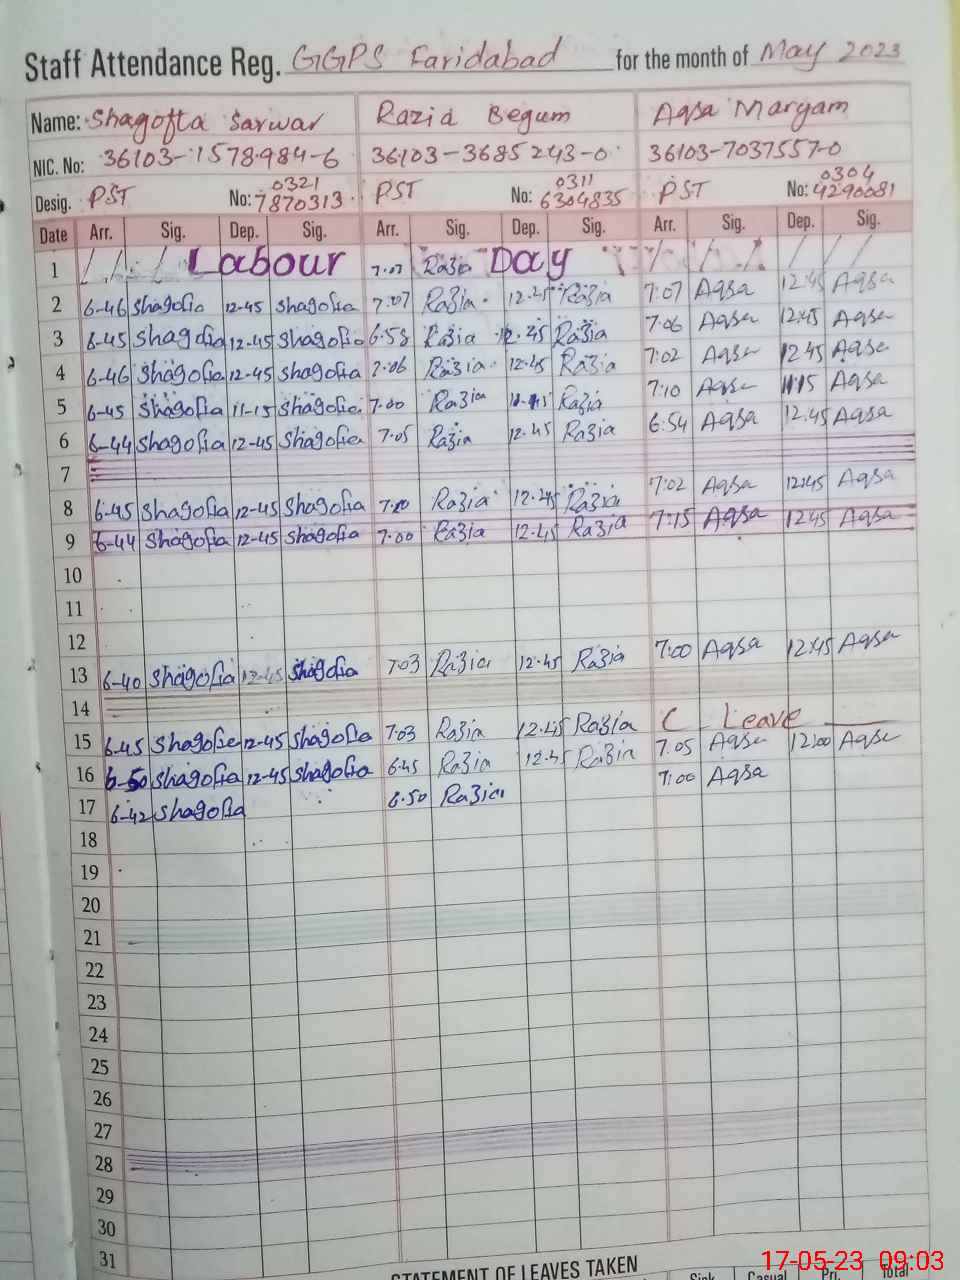 Staff Attendance Reg. GGPS Faridabad for the month of May 2023
Name: Shagofta Sarwar Razia Begum Aqsa Maryam
NIC. No: 36103-1578984-6 36103-3685243-0 36103-7037557-0
Desig. PST No: 0321 7870313 PST No: 0311 6304835 PST No: 0304 4290081
Date Arr. Sig. Dep. Sig. Arr. Sig. Dep. Sig. Arr. Sig. Dep. Sig.
1 Labour 7.07 Razia Day
2 6-46 Shagofta 12-45 Shagofta 7:07 Razia 12.45 Razia 7:07 Aqsa 12:45 Aqsa
3 6-45 Shagofta 12-45 Shagofta 6.58 Razia 12.45 Razia 7:06 Aqsa 12:45 Aqsa
4 6-46 Shagofta 12-45 Shagofta 7.06 Razia 12.45 Razia 7:02 Aqsa 12 45 Aqsa
5 6-45 Shagofta 11-15 Shagofta 7.00 Razia 11.15 Razia 7:10 Aqsa 11:15 Aqsa
6 6-44 Shagofta 12-45 Shagofta 7.05 Razia 12.45 Razia 6:54 Aqsa 12:45 Aqsa
7
8 6-45 Shagofta 12-45 Shagofta 7.00 Razia 12.45 Razia 7:02 Aqsa 12:45 Aqsa
9 6-44 Shagofta 12-45 Shagofta 7.00 Razia 12.45 Razia 7:15 Aqsa 12:45 Aqsa
10
11
12
13 6-40 Shagofta 12-45 Shagofta 7.03 Razia 12.45 Razia 7:00 Aqsa 12:45 Aqsa
14
15 6-45 Shagofta 12-45 Shagofta 7.03 Razia 12.45 Razia C Leave
16 6-50 Shagofta 12-45 Shagofta 6.45 Razia 12.45 Razia 7.05 Aqsa 12:00 Aqsa
17 6-42 Shagofta 6.50 Razia 7:00 Aqsa
18
19
20
21
22
23
24
25
26
27
28
29
30
31
STATEMENT OF LEAVES TAKEN
Sick Casual Pri. Total
17-05-23 09:03